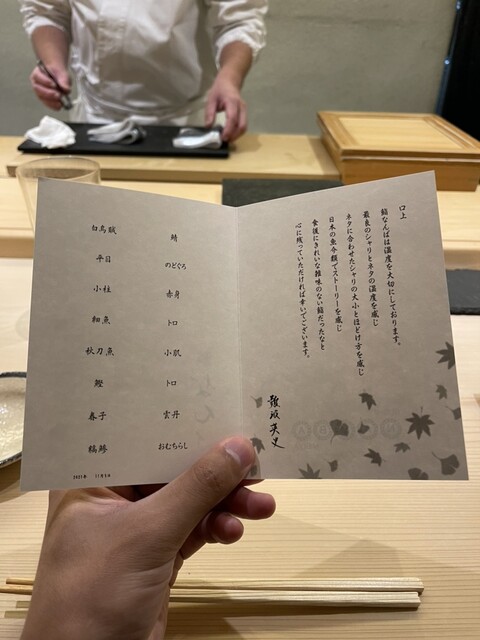 白烏賊
平目
小柱
細魚
秋刀魚
鰹
春子
鯖
のどぐろ
赤身
トロ
小肌
トロ
雲丹
おむちらし
2021年
口上
鮨なんばは温度を大切にしております。
最良のシャリとネタの温度を感じ
ネタに合わせたシャリの大小とほどけ方を感じ
日本の魚介類でストーリーを感じ
食後にきれいな雑味のない鮨だったなと
心に残っていただければ幸いでございます。
難波英史